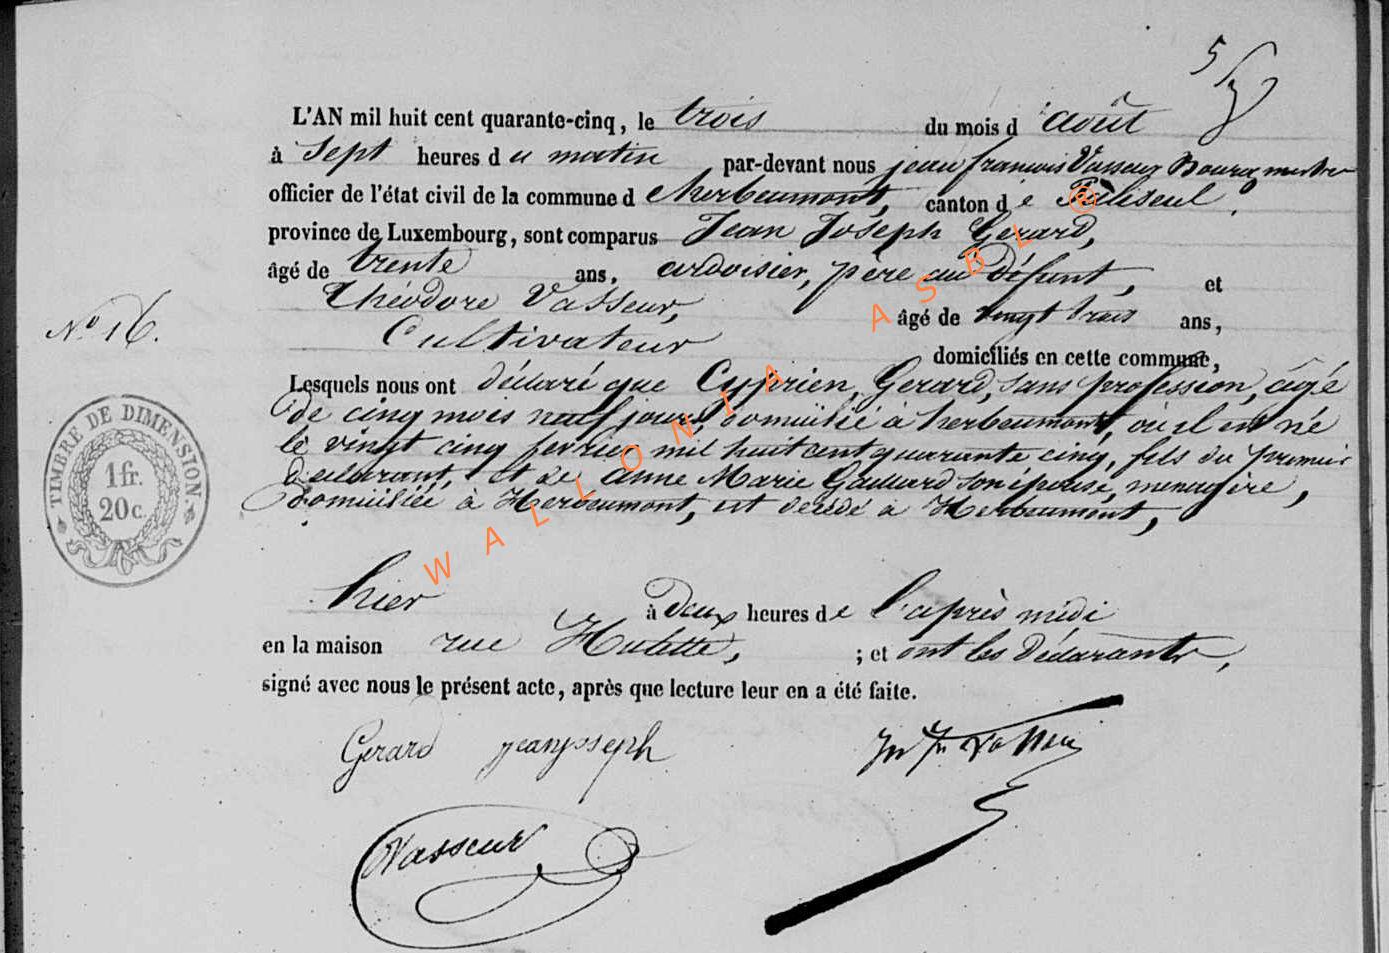 5/3
L'AN mil huit cent quarante-cinq, le trois du mois d'août
à Sept heures du matin par-devant nous jean françois Vasseur Bourgmestre
officier de l'état civil de la commune d'herbeumont, canton de Paliseul,
province de Luxembourg, sont comparus Jean Joseph Gerard,
âgé de trente ans, ardoisier, père au défunt, et
Théodore Vasseur, âgé de vingt trois ans,
Cultivateur domiciliés en cette commune,
Nº 16.
Lesquels nous ont déclaré que Cyprien Gerard, sans profession, âgé
de cinq mois neuf jours, domicilié à herbeumont, où il est né
le vingt cinq fevrier mil huit cent quarante cinq, fils du premier
déclarant, et de Anne Marie Gaillard son épouse, menagère,
domiciliée à Herbeumont, est décédé à Herbeumont,
TIMBRE DE DIMENSION
1 fr.
20 c.
hier à Deux heures de l'après midi
en la maison rue Hulette, ; et ont les Déclarants,
signé avec nous le présent acte, après que lecture leur en a été faite.
Gerard jeanjoseph
Vasseur
WALLONIA ASBL ®